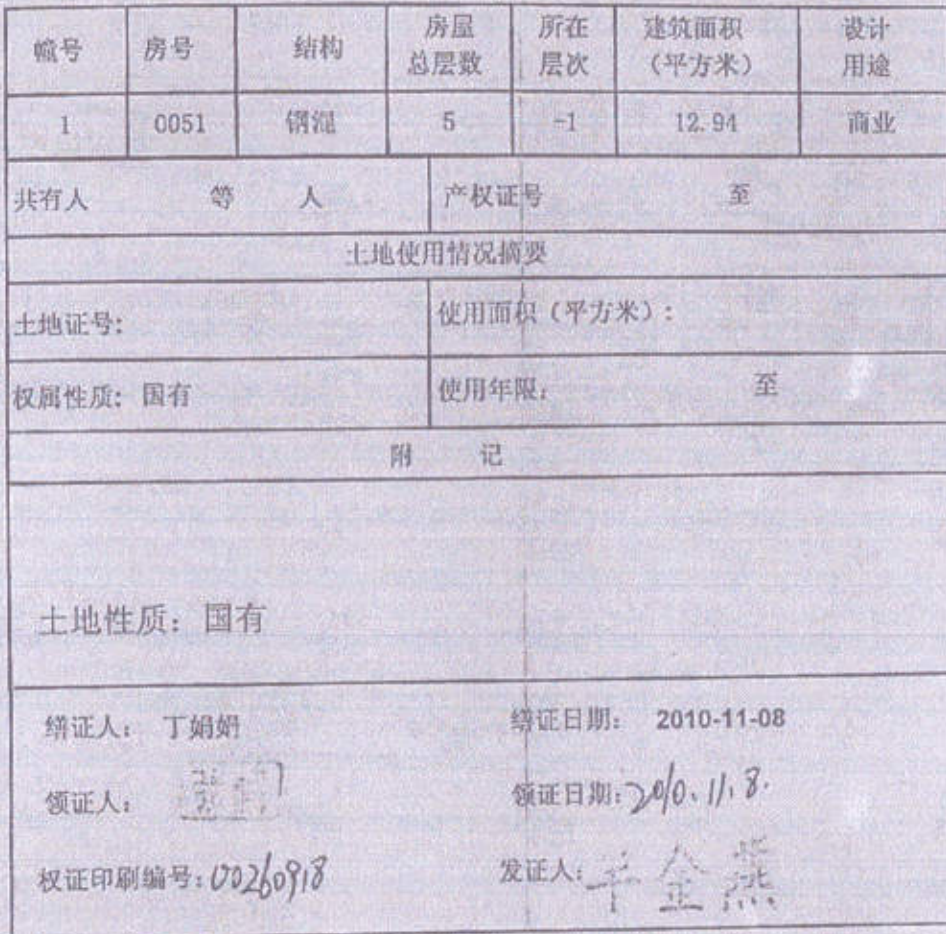 幢号 房号 结构 房屋总层数 所在层次 建筑面积（平方米） 设计用途
1 0051 钢混 5 -1 12.94 商业
共有人 等 人 产权证号 至
土地使用情况摘要
土地证号： 使用面积（平方米）：
权属性质：国有 使用年限： 至
附 记
土地性质：国有
缮证人： 丁娟娟 缮证日期： 2010-11-08
领证人： 领证日期：2010.11.8.
权证印刷编号：00260918 发证人： 金燕